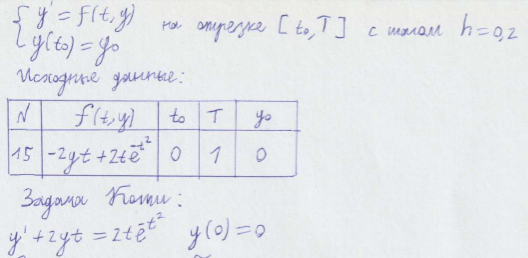 { y' = f(t, y)
{ y(t₀) = y₀ на отрезке [t₀, T] с шагом h = 0,2
Исходные данные:
N f(t, y) t₀ T y₀
15 -2yt + 2te^{-t²} 0 1 0
Задача Коши:
y' + 2yt = 2te^{-t²} y(0) = 0